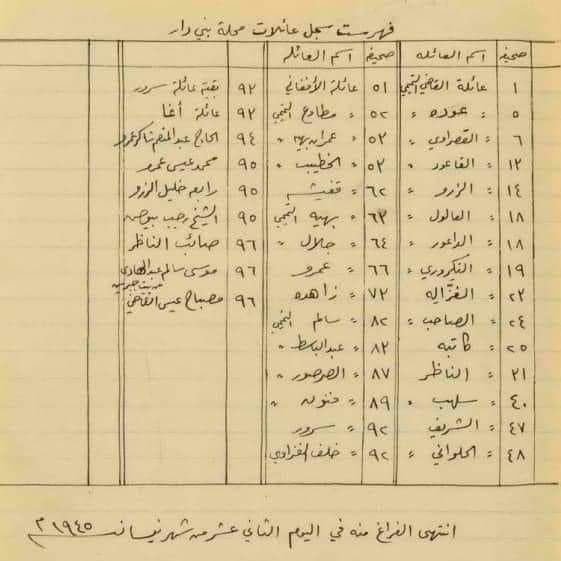 فهرست سجل عائلات محلة بني دار
صحيفة اسم العائله صحيفة اسم العائله
١ عائلة القاضي التميمي ٥١ عائلة الأفغاني ٩٢ بقية عائلة سرور
٥ " عوده " ٥٢ " مطاوع التميمي ٩٣ عائلة أغا
٦ " القصراوي " ٥٣ " عمران بهيه " ٩٤ الحاج عبد المنعم شاكر عمرو
١٣ " القاعود " ٥٣ " الخطيب " ٩٥ محمد عيسى عمرو
١٤ " الزرو " ٦٢ " قفيشه ٩٥ رابعه خليل الزرو
١٨ " العالول " ٦٣ " بهيه التميمي ٩٥ الشيخ رجب بيوض
١٨ " الداعور " ٦٤ " جلال " ٩٦ صائب الناظر
١٩ " التكروري " ٦٦ " عمرو ٩٦ موسى سالم عبد الهادي
من بيت جبرين
٢٣ " الغزاله ٧٢ " زاهده ٩٦ مصباح عيسى القاضي
٢٤ " الصاحب " ٨٢ " سالم التميمي
٢٥ " كاتبه ٨٣ " عبد الباسط "
٣١ " الناظر ٨٧ " الصرصور "
٤٠ " سلهب " ٨٩ " منونه "
٤٧ " الشريف ٩٢ " سرور
٤٨ " الحلواني " ٩٢ " خلف الغزاوي
انتهى الفراغ منه في اليوم الثاني عشر من شهر نيسان سنة ١٩٤٥ م